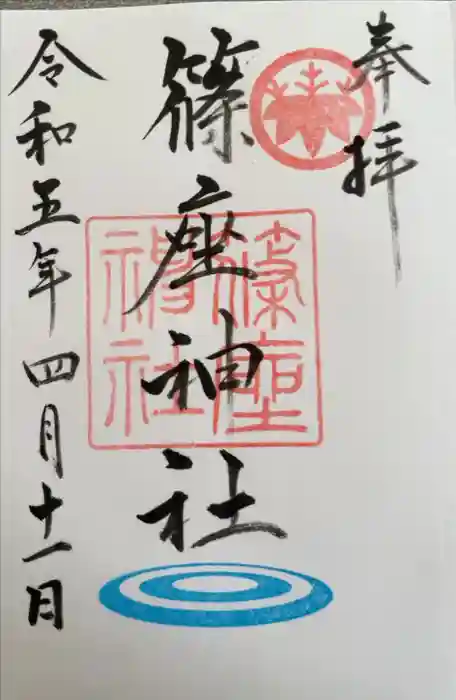 奉拝
篠座神社
篠座神社
令和五年四月十一日